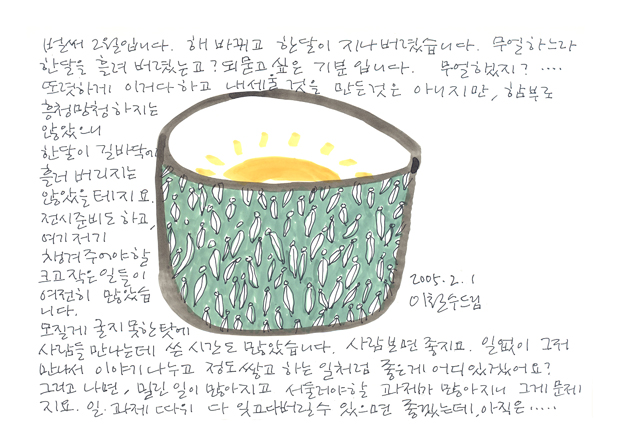 벌써 2월입니다. 해 바뀌고 한달이 지나버렸습니다. 무얼하느라
한달을 흘려 버렸는고? 되묻고 싶은 기분입니다. 무얼했지? ····
또렷하게 이거다하고 내세울 것을 만든것은 아니지만, 함부로
흥청망청하지는
않았으니
한달이 길바닥에
흘려 버리지는
않았을테지요.
전시준비도하고,
여기저기
챙겨주어야할
크고작은일들이
여전히 많았습
니다.
모질게 굴지못한탓에
사람들 만나는데 쓴 시간도 많았습니다. 사람보면 좋지요. 일없이 그저
만나서 이야기나누고 정도쌓고 하는 일처럼 좋은게 어디있겠어요?
그러고 나면, 밀린 일이 많아지고 서둘러야할 과제가 많아지니 그게 문제
지요. 일·과제 따위 다 잊고다버릴수 있으면 좋겠는데, 아직은·····
2005.2.1
이철수드림